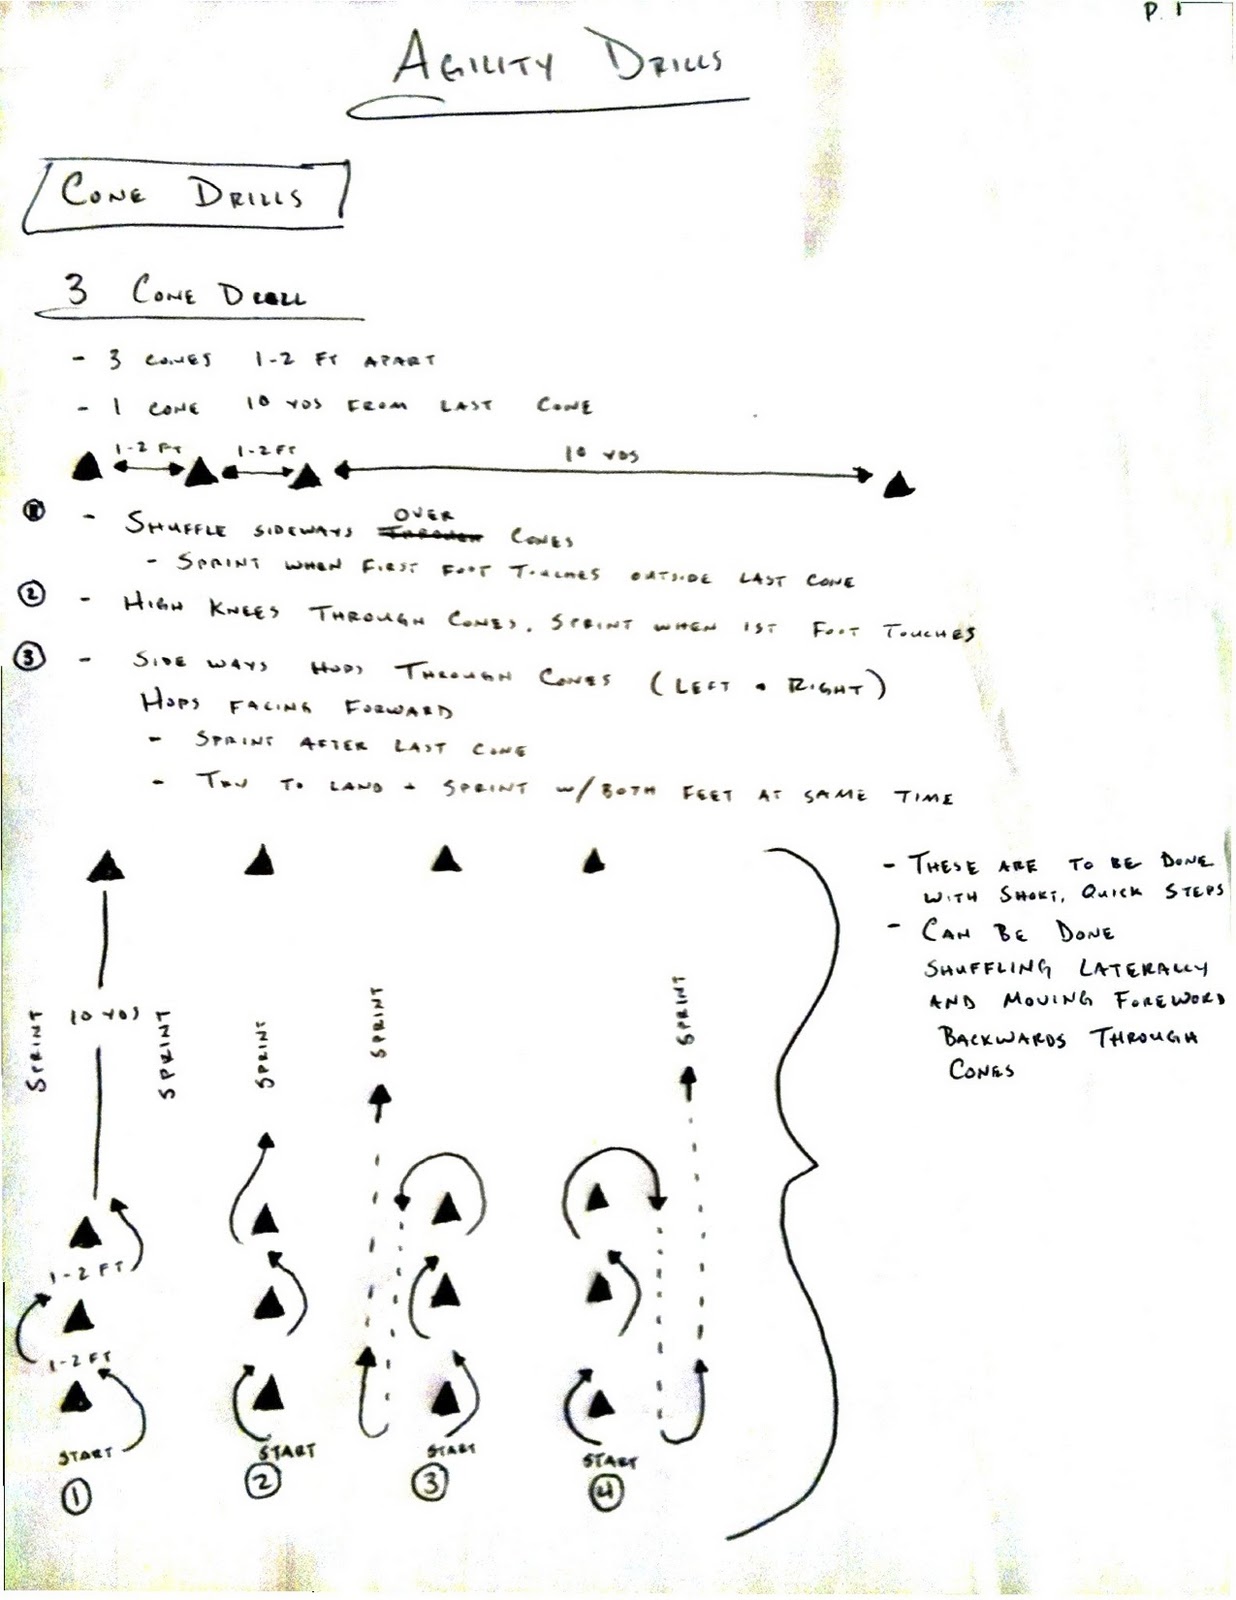 P. 1
AGILITY DRILLS
CONE DRILLS
3 CONE DRILL
- 3 CONES 1-2 FT APART
- 1 CONE 10 YDS FROM LAST CONE
1-2 FT 1-2 FT 10 YDS
① - SHUFFLE SIDEWAYS THROUGH OVER CONES
- SPRINT WHEN FIRST FOOT TOUCHES OUTSIDE LAST CONE
② - HIGH KNEES THROUGH CONES, SPRINT WHEN 1ST FOOT TOUCHES
③ - SIDE WAYS HOPS THROUGH CONES (LEFT + RIGHT)
HOPS FACING FORWARD
- SPRINT AFTER LAST CONE
- TRY TO LAND + SPRINT W/BOTH FEET AT SAME TIME
- THESE ARE TO BE DONE
WITH SHORT, QUICK STEPS
- CAN BE DONE
SHUFFLING LATERALLY
AND MOVING FOREWORD
BACKWARDS THROUGH
CONES
SPRINT 10 YDS SPRINT SPRINT SPRINT SPRINT
1-2 FT
1-2 FT
START START START START
① ② ③ ④